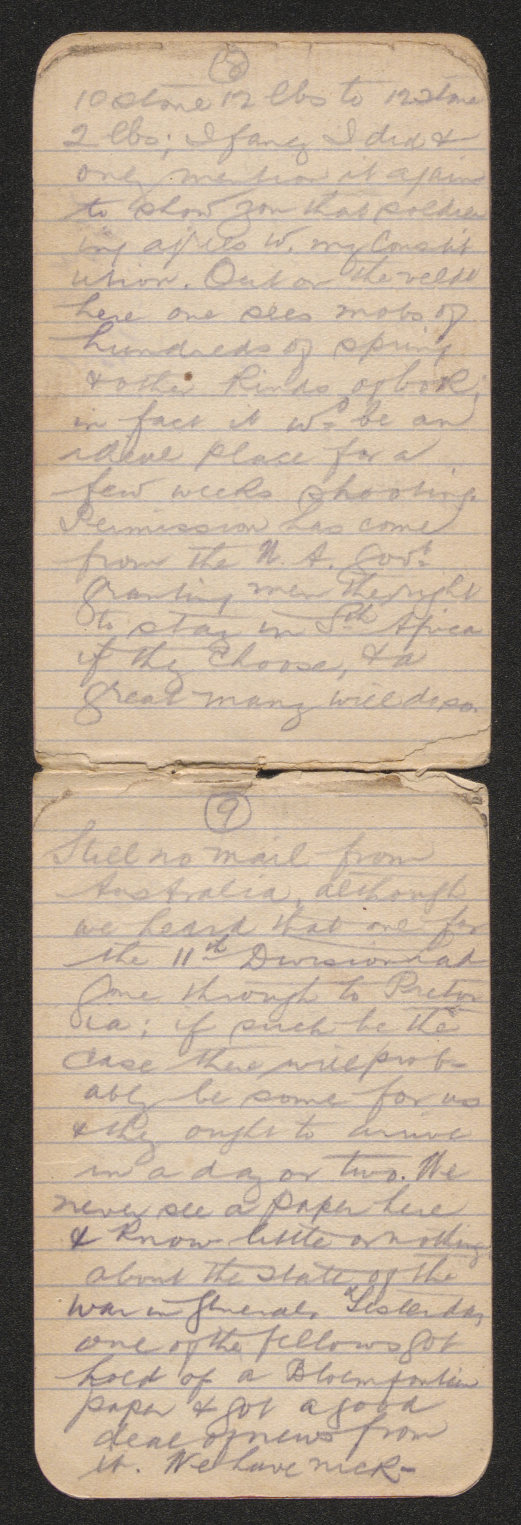 (8)
10 stone 12 lbs to 12 stone
2 lbs; I fancy I did &
only mention it again
to show you that soldier
ing agrees w. my Constit
ution. Out on the veldt
here one sees mobs of
hundreds of spring
& other kinds of bok;
in fact it wd. be an
ideal place for a
few weeks shooting.
Permission has come
from the N. A. Govt.
granting men the right
to stay in Sth Africa
if they choose, & a
great many will do so.
(9)
Still no mail from
Australia, although
we heard that one for
the 11th Division had
gone through to Pretor
ia; if such be the
case there will prob-
ably be some for us
& they ought to arrive
in a day or two. We
never see a paper here
& know little or nothing
about the state of the
war in general. Yesterday
one of the fellows got
hold of a Bloemfontein
paper & got a good
deal of news from
it. We have nick-